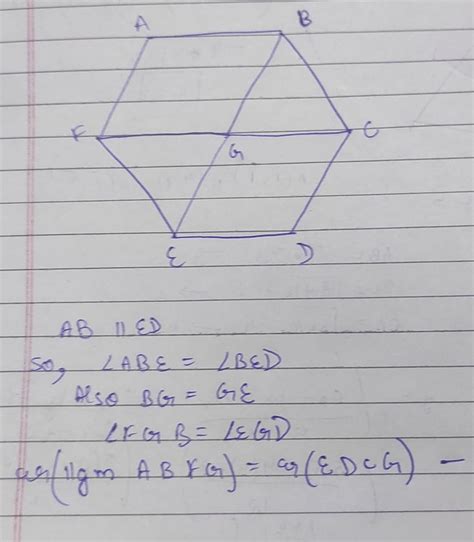 A B
F G C
E D
AB || ED
So, ∠ABE = ∠BED
Also BG = GE
∠FGB = ∠EGD
ar(||gm ABFG) = ar(EDCG) —